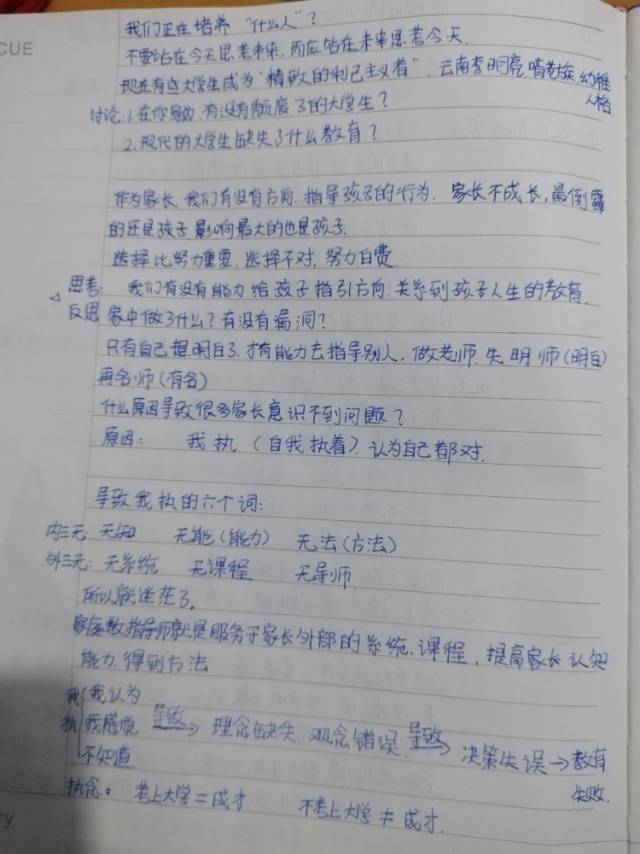 CUE
我们正在培养“什么人”？
不要站在今天思考未来，而应站在未来思考今天.
现在有些大学生成为“精致的利己主义者”. 云南李明亮. 啃老族, 幼稚人格
讨论: 1. 在你身边, 有没有颓废了的大学生？
2. 现代的大学生缺失了什么教育？
作为家长, 我们有没有方向, 指导孩子的行为. 家长不成长, 最倒霉
的还是孩子, 影响最大的也是孩子.
选择比努力重要, 选择不对, 努力白费.
思考: 我们有没有能力给孩子指引方向, 关系到孩子人生的教育.
反思 家中做了什么？有没有漏洞？
只有自己想明白了, 才有能力去指导别人, 做老师, 先明师(明白)
再名师(有名)
什么原因导致很多家长意识不到问题？
原因: 我执 (自我执着) 认为自己都对.
导致我执的六个词:
内三无: 无知 无能(能力) 无法(方法)
外三无: 无系统 无课程 无导师.
所以就迷茫了.
家庭教指导师就是服务于家长外部的系统、课程, 提高家长认知
能力, 得到方法
我执 我认为
我感觉 导致→ 理念缺失, 观念错误, 导致→ 决策失误→教育失败.
不知道
执念: 考上大学=成才 不考上大学≠成才.
ry